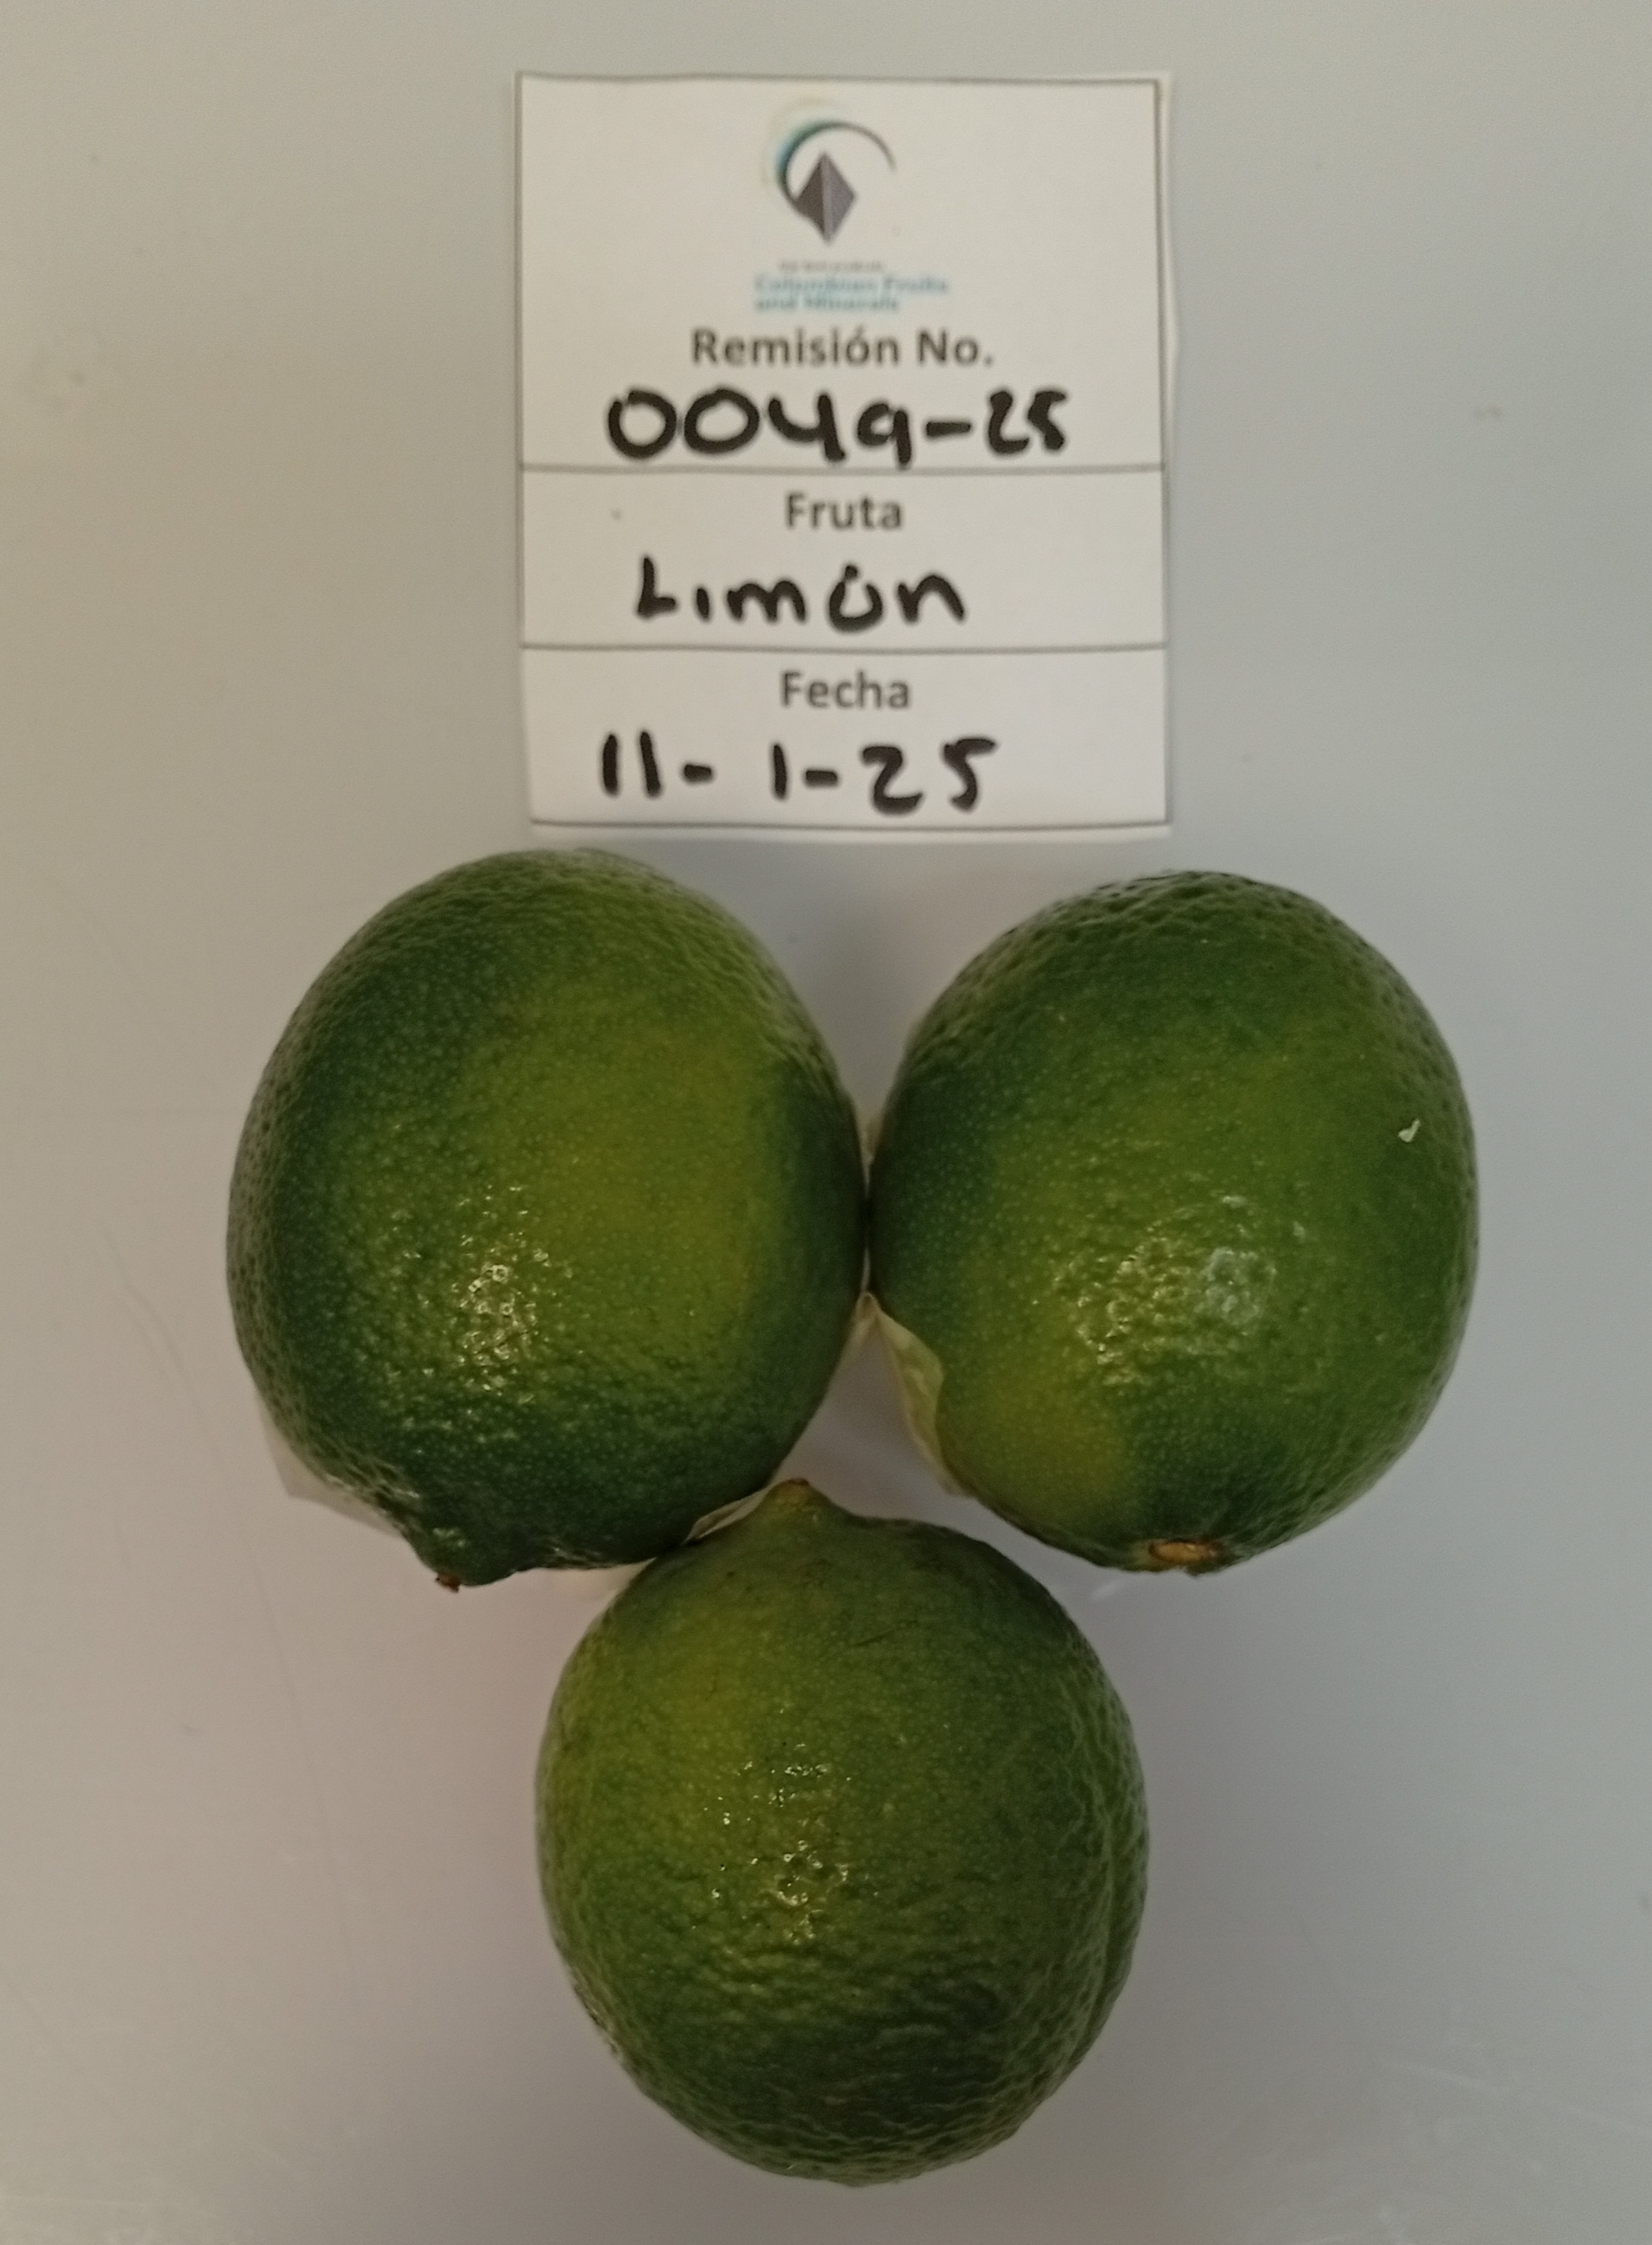 Colombian Fruits
and Minerals
Remisión No.
0049-25
Fruta
Limón
Fecha
11-1-25